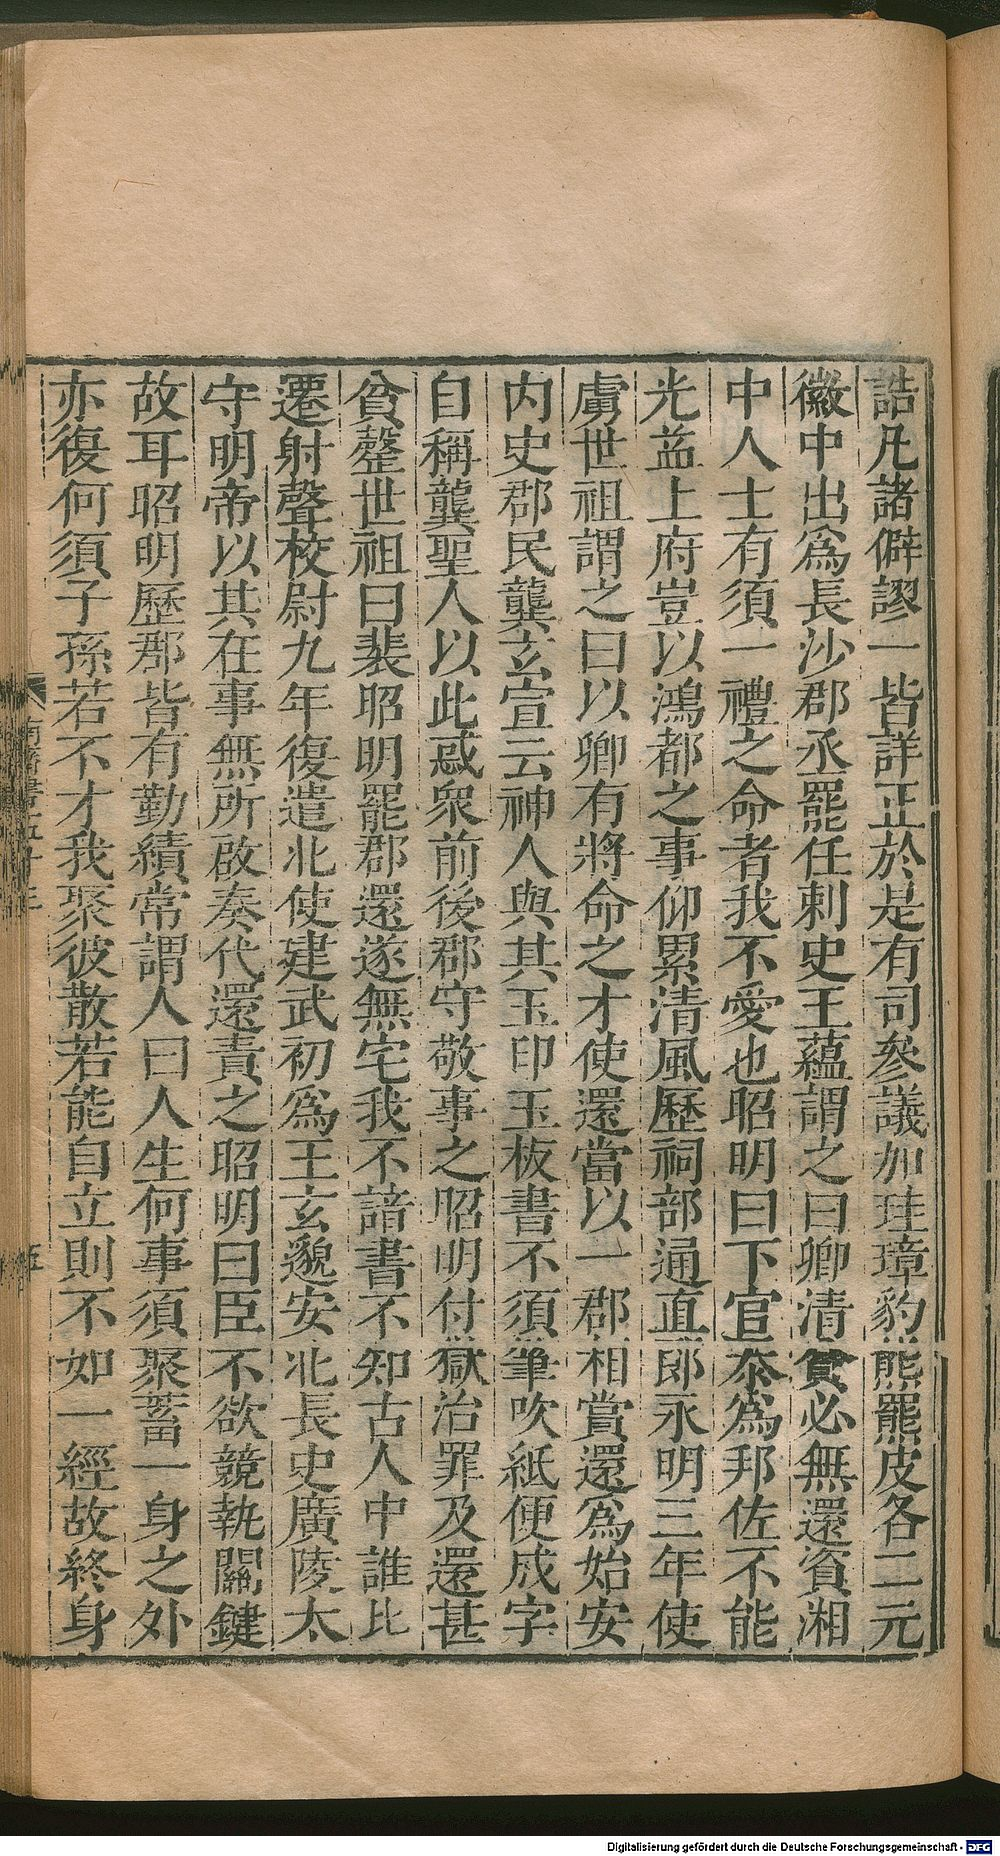 誥凡諸僻謬一皆詳正於是有司參議加珪璋豹熊羆皮各二元
徽中出爲長沙郡丞罷任刺史王蘊謂之曰卿清貧必無還資湘
中人士有須一禮之命者我不愛也昭明曰下官忝爲邦佐不能
光益上府豈以鴻都之事仰累清風歷祠部通直郎永明三年使
虜世祖謂之曰以卿有將命之才使還當以一郡相賞還爲始安
内史郡民龔玄宣云神人與其玉印玉板書不須筆吹紙便成字
自稱龔聖人以此惑衆前後郡守敬事之昭明付獄治罪及還甚
貧罄世祖曰裴昭明罷郡還遂無宅我不諳書不知古人中誰比
遷射聲校尉九年復遣北使建武初爲王玄邈安北長史廣陵太
守明帝以其在事無所啟奏代還責之昭明曰臣不欲競執關鍵
故耳昭明歷郡皆有勤績常謂人曰人生何事須聚蓄一身之外
亦復何須子孫若不才我聚彼散若能自立則不如一經故終身
南齊書五十三
五
Digitalisierung gefördert durch die Deutsche Forschungsgemeinschaft - DFG